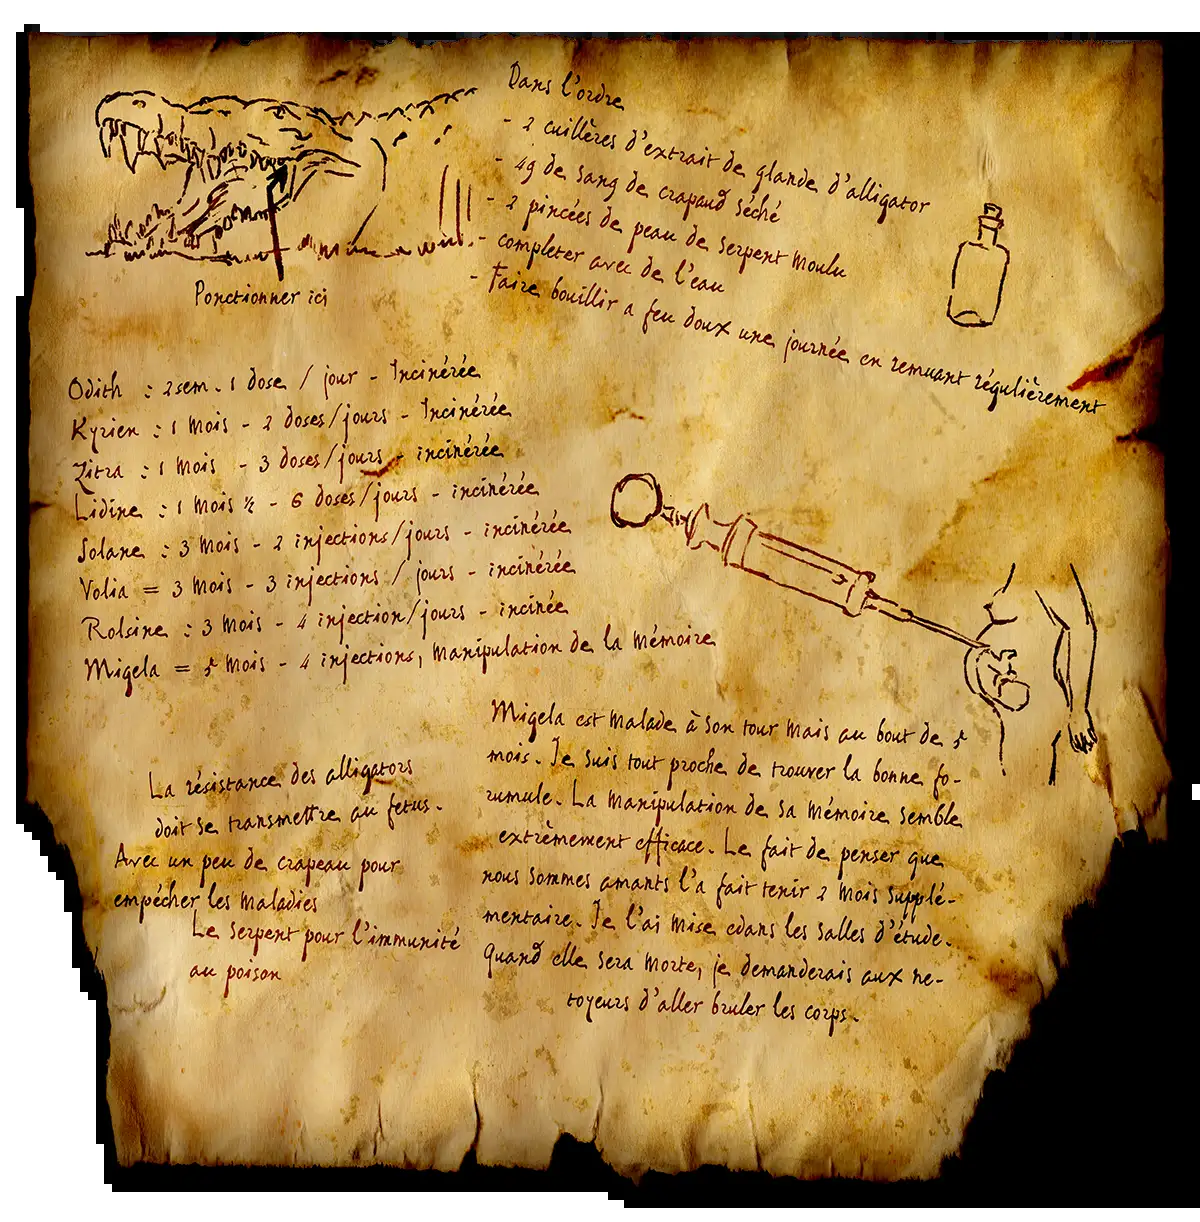 Dans l'ordre
- 2 cuillères d'extrait de glande d'alligator
- 4g de sang de crapaud séché
- 2 pincées de peau de serpent moulu
- completer avec de l'eau
- Faire bouillir a feu doux une journée en remuant régulièrement
Ponctionner ici
Odith : 2sem. 1 dose / jour - Incinérée
Kyrien : 1 mois - 2 doses/jours - Incinérée
Zitra : 1 mois - 3 doses/jours - incinérée
Lidine : 1 mois ½ - 6 doses/jours - incinérée
Solane : 3 mois - 2 injections/jours - incinérée
Volia = 3 mois - 3 injections / jours - incinérée
Rolsine : 3 mois - 4 injection/jours - incinée
Migela = 5 mois - 4 injections, manipulation de la mémoire
La résistance des alligators
doit se transmettre au fetus.
Avec un peu de crapeau pour
empécher les maladies
Le serpent pour l'immunité
au poison
Migela est malade à son tour mais au bout de 5
mois. Je suis tout proche de trouver la bonne fo-
rumule. La manipulation de sa mémoire semble
extrèmement efficace. Le fait de penser que
nous sommes amants l'a fait tenir 2 mois supplé-
mentaire. Je l'ai mise cdans les salles d'étude.
Quand elle sera morte, je demanderais aux ne-
toyeurs d'aller bruler les corps.